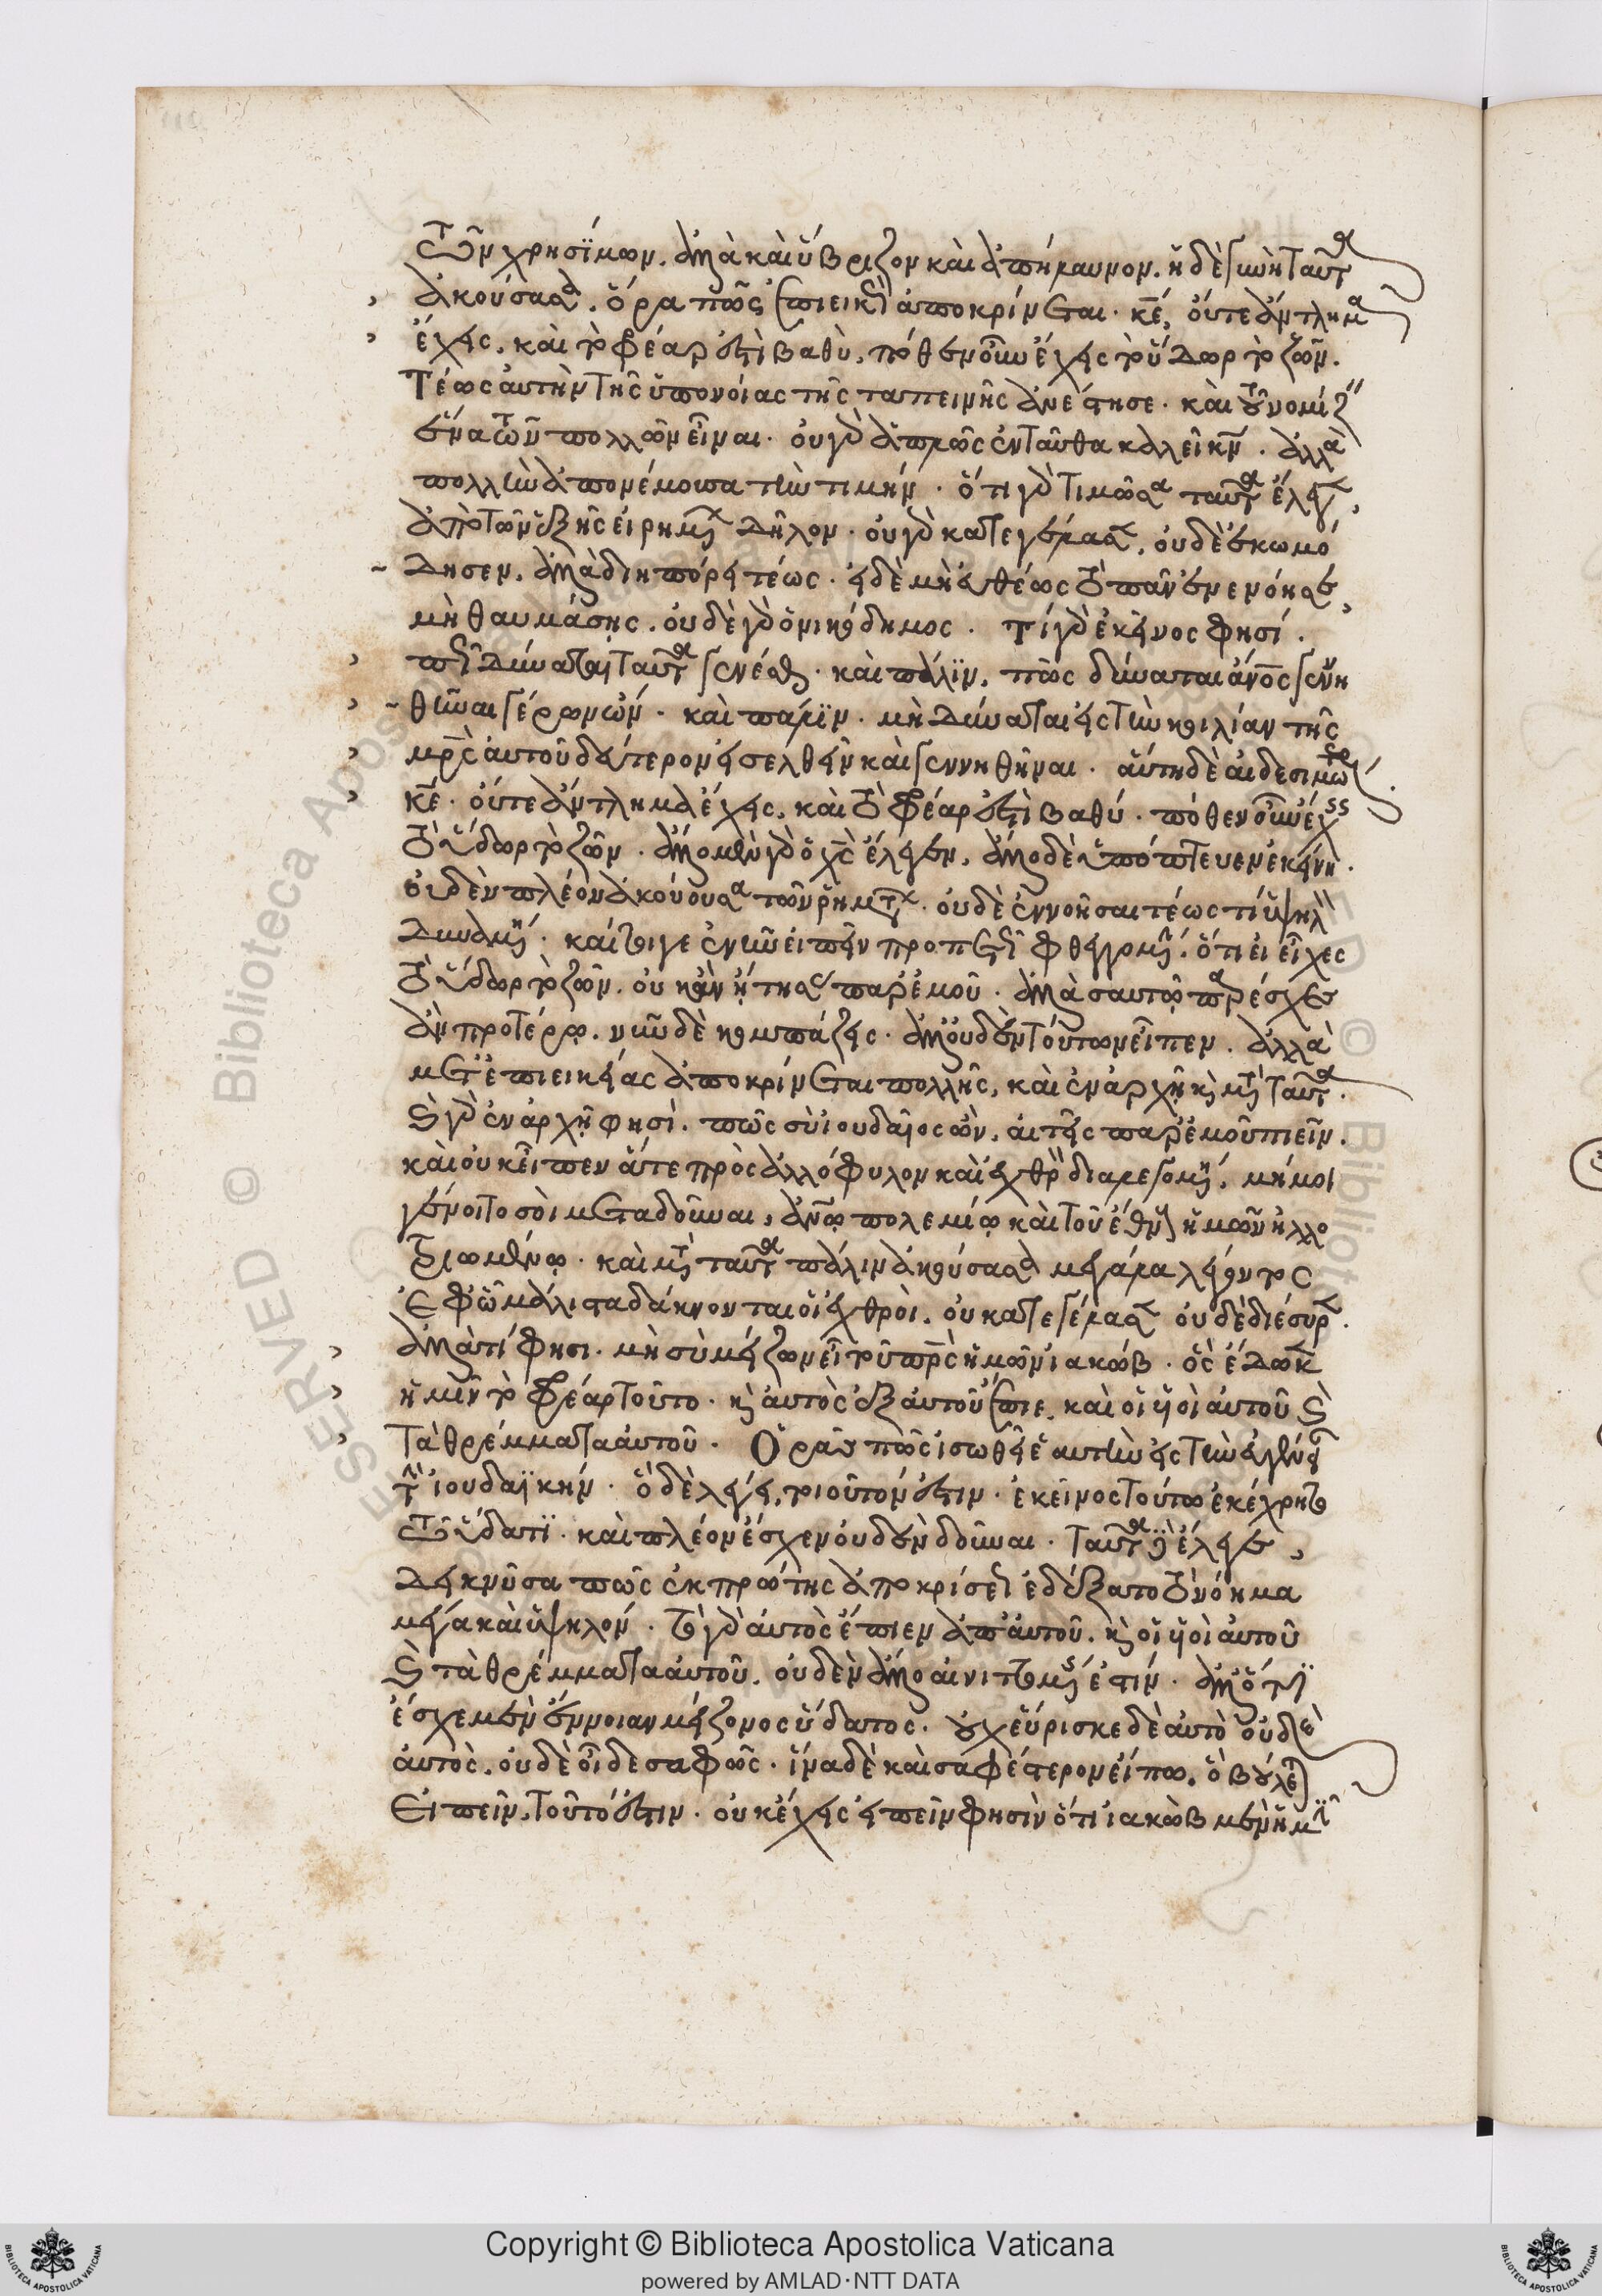 τῶν χρησίμων. ἀλλὰ καὶ ὕβριζον καὶ ἀπήλαυνον. ἡ δὲ γυνὴ ταῦτα
ἀκούσασα. ὅρα πῶς ἐπιεικῶς ἀποκρίνεται. κε, οὔτε ἄντλημα
ἔχεις, καὶ τὸ φρέαρ ἐστὶ βαθὺ, πόθεν οὖν ἔχεις τὸ ὕδωρ τὸ ζῶν.
Τέως αὐτὴν τῆς ὑπονοίας τῆς ταπεινῆς ἀνέστησε. καὶ τοῦ νομίζειν
ἕνα τῶν πολλῶν εἶναι. οὐ γὰρ ἁπλῶς ἐνταῦθα καλεῖ κν. ἀλλὰ
πολλὴν ἀπονέμουσα τὴν τιμήν. ὅτι γὰρ τιμῶσα ταῦτα ἔλεγεν,
ἀπὸ τῶν ἑξῆς εἰρημένων δῆλον. οὐ γὰρ κατεγέλασεν, οὐδὲ ἐκωμώ
δησεν. ἀλλὰ διηπόρει τέως. εἰ δὲ μὴ εὐθέως τὸ πᾶν ἐνενόησεν,
μὴ θαυμάσῃς. οὐδὲ γὰρ ὁ νικόδημος. τί γὰρ ἐκεῖνος φησί.
πῶς δύναται ταῦτα γενέσθαι. καὶ πάλιν. πῶς δύναται ἄνος γεννη
θῆναι γέρων ὤν. καὶ πάλιν. μὴ δύναται εἰς τὴν κοιλίαν τῆς
μρς αὐτοῦ δεύτερον εἰσελθεῖν καὶ γεννηθῆναι. αὕτη δὲ αἰδεσιμώτερον
κε. οὔτε ἄντλημα ἔχεις, καὶ τὸ φρέαρ ἐστὶ βαθύ. πόθεν οὖν ἔχεις
τὸ ὕδωρ τὸ ζῶν. ἄλλο μὲν γὰρ ὁ χς ἔλεγεν, ἄλλο δὲ ὑπώπτευεν ἐκείνη.
οὐδὲν πλέον ἀκούουσα τῶν ῥημάτων. οὐδὲ ἐννοῆσαι τέως τί ὑψηλὸν
δυναμένη. καίτοιγε ἐνῆν εἰπεῖν προπετῶς φθεγγομένη. ὅτι εἰ εἶχες
τὸ ὕδωρ τὸ ζῶν. οὐκ ἂν ᾔτησας παρ' ἐμοῦ. ἀλλὰ σαυτῷ παρέσχες
ἂν προτέρῳ. νῦν δὲ κομπάζεις. ἀλλ' οὐδὲν τούτων εἶπεν. ἀλλὰ
μετ' ἐπιεικείας ἀποκρίνεται πολλῆς, καὶ ἐν ἀρχῇ καὶ μετὰ ταῦτα.
καὶ γὰρ ἐν ἀρχῇ φησὶ. πῶς σὺ ἰουδαῖος ὢν, αἰτεῖς παρ' ἐμοῦ πιεῖν.
καὶ οὐκ εἶπεν ἅτε πρὸς ἀλλόφυλον καὶ ἐχθρὸν διαλεγομένη. μή μοι
γένοιτο σοὶ μεταδοῦναι, ἀνῳ πολεμίῳ καὶ τοῦ ἔθνους ἡμῶν ἠλλο
τριωμένῳ. καὶ μετὰ ταῦτα πάλιν ἀκούσασα μεγάλα λέγοντος
Ἐφ' ᾧ μάλιστα δάκνονται οἱ ἐχθροὶ. οὐ κατεγέλασεν οὐδὲ διέσυρεν.
ἀλλὰ τί φησι. μὴ σὺ μείζων εἶ τοῦ πρς ἡμῶν ἰακώβ. ὃς ἔδωκεν
ἡμῖν τὸ φρέαρ τοῦτο. καὶ αὐτὸς ἐξ αὐτοῦ ἔπιε. καὶ οἱ υἱοὶ αὐτοῦ καὶ
τὰ θρέμματα αὐτοῦ. Ὁρᾷς πῶς εἰσωθεῖ ἑαυτὴν εἰς τὴν εὐγένειαν
τὴν ἰουδαϊκήν. ὃ δὲ λέγει, τοιοῦτόν ἐστιν. ἐκεῖνος τούτῳ ἐκέχρητο
τῷ ὕδατι. καὶ πλέον ἔσχεν οὐδὲν δοῦναι. ταῦτα δὲ ἔλεγεν,
δεικνῦσα πῶς ἐκ πρώτης ἀποκρίσεως ἐδέξατο τὸ νόημα
μέγα καὶ ὑψηλόν. τὸ γὰρ αὐτὸς ἔπιεν ἀπ' αὐτοῦ. καὶ οἱ υἱοὶ αὐτοῦ
καὶ τὰ θρέμματα αὐτοῦ. οὐδὲν ἄλλο αἰνιττομένης ἐστίν. ἀλλ' ὅτι
ἔσχε μὲν ἔννοιαν μείζονος ὕδατος. οὐχ εὕρισκε δὲ αὐτὸ οὐδὲ
αὐτὸς. οὐδὲ οἶδε σαφῶς. ἵνα δὲ καὶ σαφέστερον εἴπω. ὃ βούλεται
Εἰπεῖν, τοῦτό ἐστιν. οὐκ ἔχεις εἰπεῖν φησὶν ὅτι ἰακὼβ μὲν ἡμῖν
Copyright © Biblioteca Apostolica Vaticana
powered by AMLAD·NTT DATA